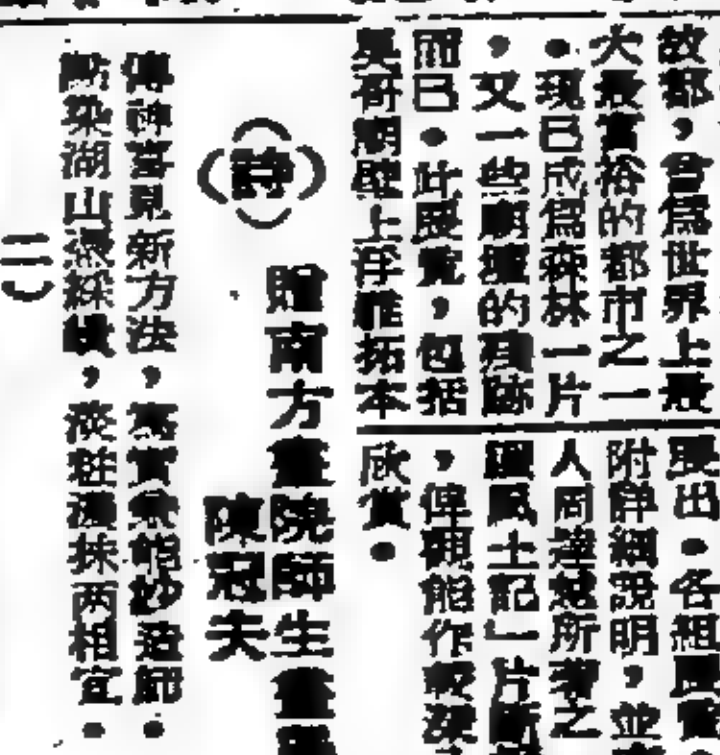 故都，曾爲世界上最
大最富裕的都市之一
●現已成爲森林一片
，又一些廟壇的殘跡
而已●此展覽，包括
吳哥廟壁上浮雕拓本
展出●各組展覽
附詳細說明，並
人周達觀所著之
風土記」片斷
，俾觀能作較深
欣賞●
（詩）
贈南方畫院師生畫展
陳冠夫
傳神喜見新方法，寫實兼能妙造師●
點染湖山 綵 ，淡粧濃抹两相宜●
二）